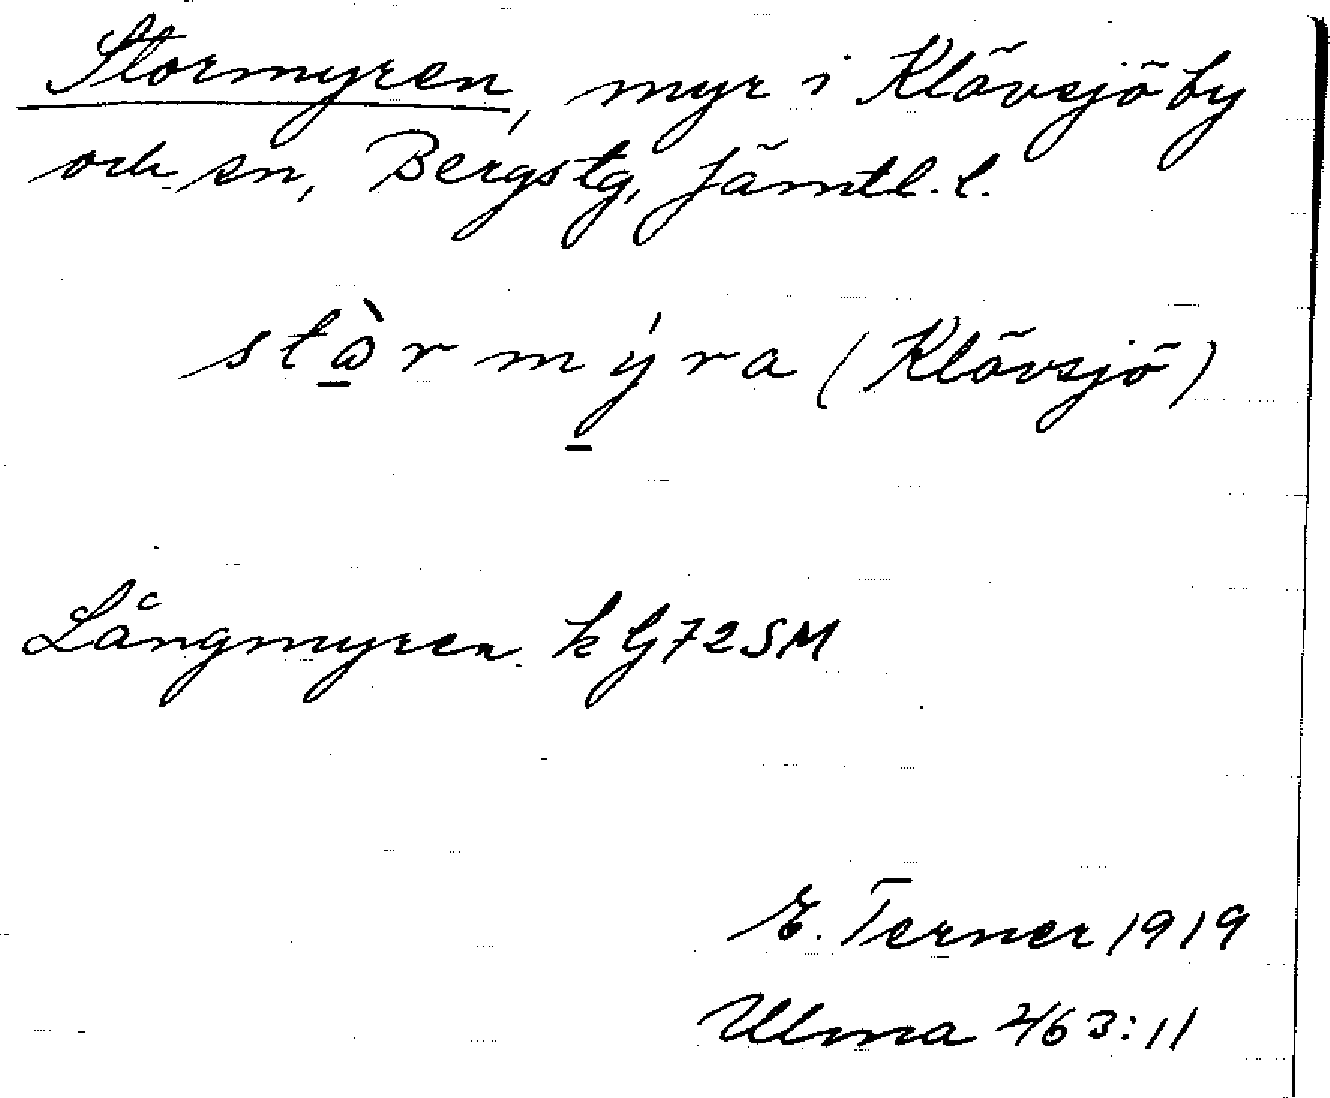 Stormyren, myr i Klövsjö by
och sn, Bergs tg, Jämtl. l.
stὼ̱rmý̱ra (Klövsjö)
Långmyren k G72SM
E. Terner 1919
Ulma 263:11